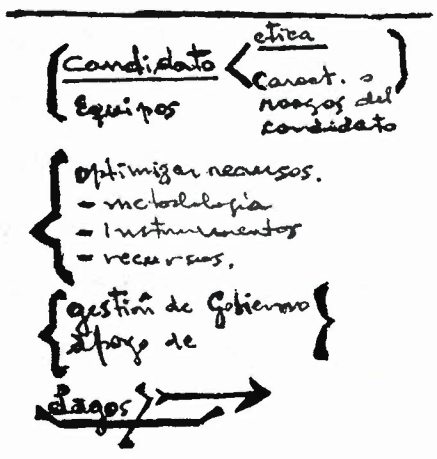 etica
Candidato
Caract. o
Equipos
rasgos del
candidato
optimizar recursos.
- metodología
- instrumentos
- recursos.
gestión de Gobierno
apoyo de
Lagos